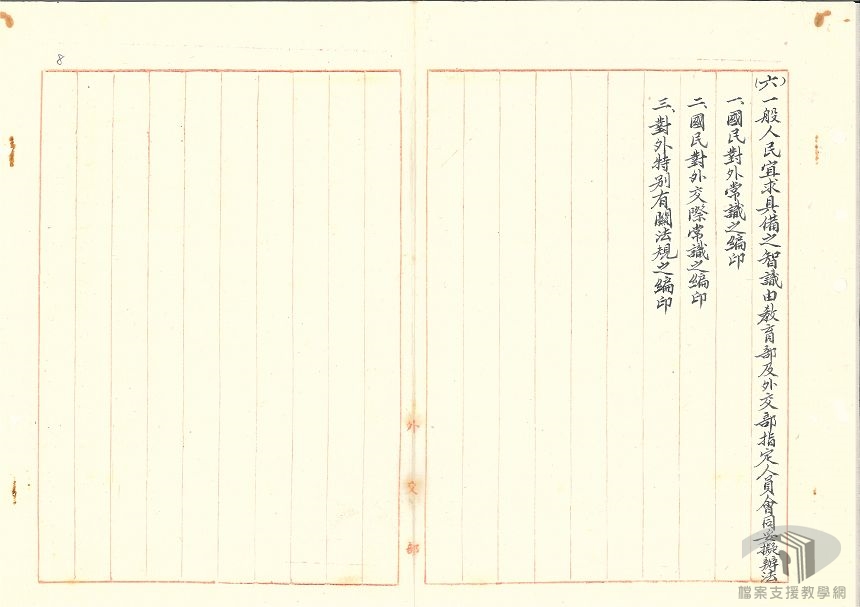 (六)一般人民宜求具備之智識由教育部及外交部指定人員會同妥擬辦法
一、國民對外常識之編印
二、國民對外交際常識之編印
三、對外特別有關法規之編印
外交部
8
檔案支援教學網